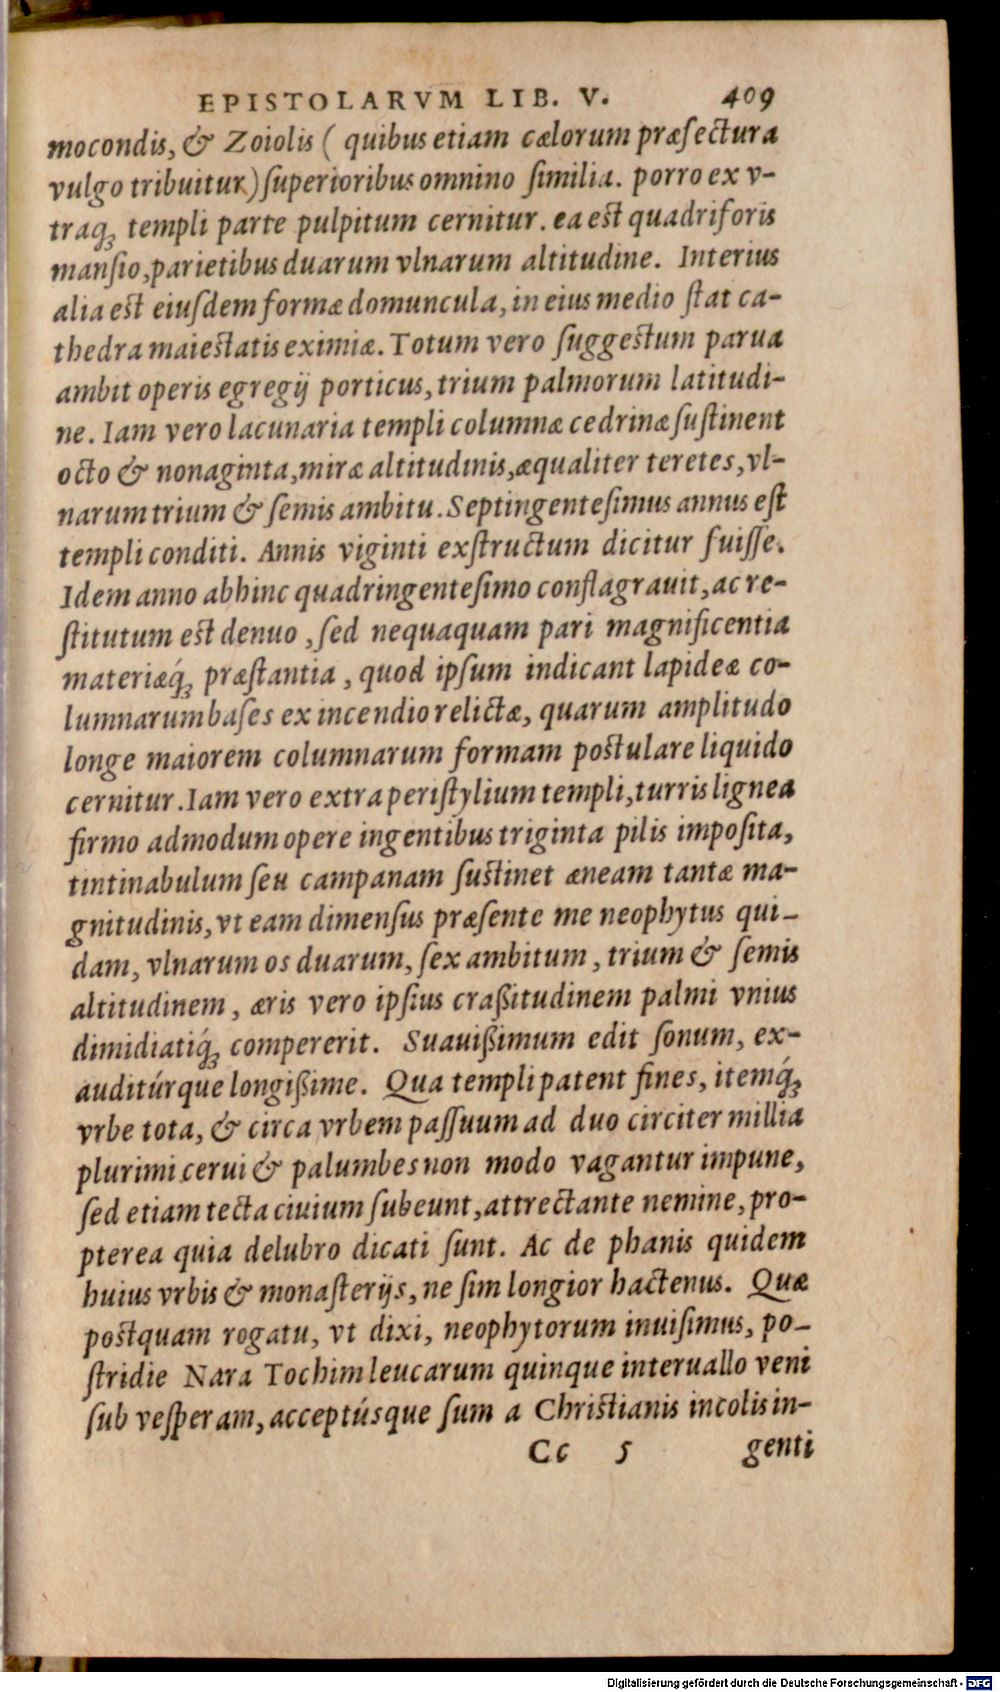 EPISTOLARVM LIB. V. 409
mocondis, & Zoiolis ( quibus etiam cælorum præfectura
vulgo tribuitur) ſuperioribus omnino ſimilia. porro ex v-
traq; templi parte pulpitum cernitur. ea est quadriforis
manſio, parietibus duarum vlnarum altitudine. Interius
alia est eiuſdem formæ domuncula, in eius medio ſtat ca-
thedra maiestatis eximiæ. Totum vero ſuggestum parua
ambit operis egregij porticus, trium palmorum latitudi-
ne. Iam vero lacunaria templi columnæ cedrinæ ſuſtinent
octo & nonaginta, miræ altitudinis, æqualiter teretes, vl-
narum trium & ſemis ambitu. Septingenteſimus annus eſt
templi conditi. Annis viginti exſtructum dicitur fuiſſe.
Idem anno abhinc quadringenteſimo conflagrauit, ac re-
ſtitutum est denuo, ſed nequaquam pari magnificentia
materiæq́; præſtantia, quod ipſum indicant lapideæ co-
lumnarum baſes ex incendio relictæ, quarum amplitudo
longe maiorem columnarum formam postulare liquido
cernitur. Iam vero extra periſtylium templi, turris lignea
firmo admodum opere ingentibus triginta pilis impoſita,
tintinabulum ſeu campanam ſustinet æneam tantæ ma-
gnitudinis, vt eam dimenſus præſente me neophytus qui-
dam, vlnarum os duarum, ſex ambitum, trium & ſemis
altitudinem, æris vero ipſius craßitudinem palmi vnius
dimidiatiq́; compererit. Suauißimum edit ſonum, ex-
auditúrque longißime. Qua templi patent fines, itemq́;
vrbe tota, & circa vrbem paſſuum ad duo circiter millia
plurimi cerui & palumbes non modo vagantur impune,
ſed etiam tecta ciuium ſubeunt, attrectante nemine, pro-
pterea quia delubro dicati ſunt. Ac de phanis quidem
huius vrbis & monaſterijs, ne ſim longior hactenus. Quæ
postquam rogatu, vt dixi, neophytorum inuiſimus, po-
ſtridie Nara Tochim leucarum quinque interuallo veni
ſub veſperam, acceptúsque ſum a Christianis incolis in-
Cc 5 genti
Digitalisierung gefördert durch die Deutsche Forschungsgemeinschaft - DFG